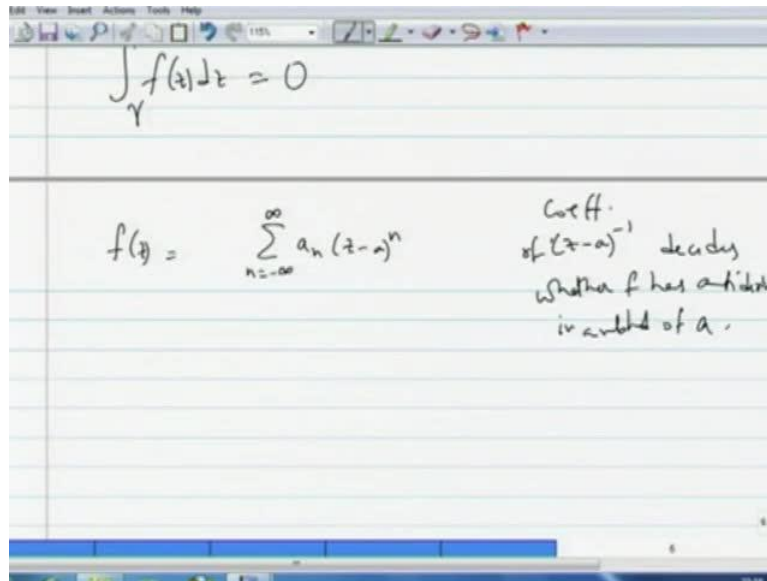 Edit View Insert Actions Tools Help
115%
∫_γ f(z)dz = 0
f(z) = ∑_{n=-∞}^{∞} a_n (z-a)^n
Coeff.
of (z-a)^{-1} decides
whether f has antideri
in a nbhd of a.
6